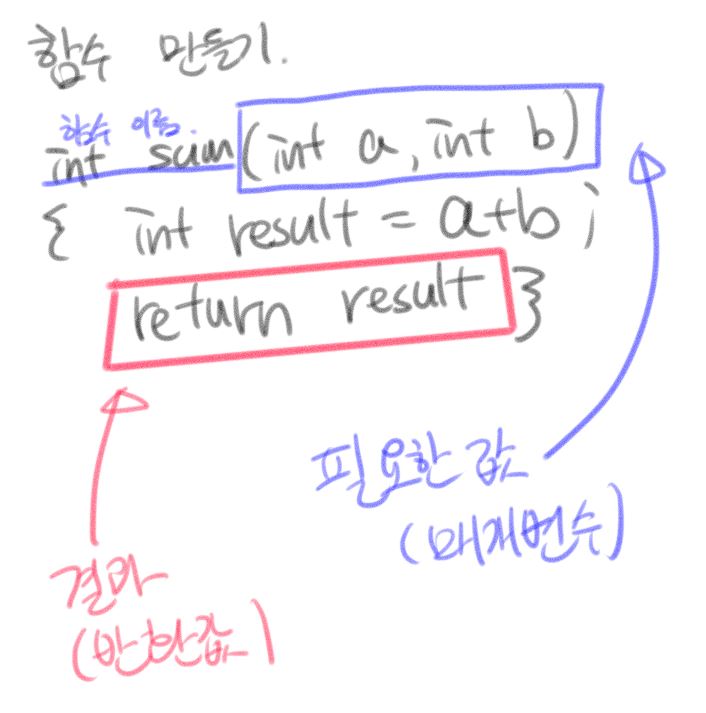 함수 만들기.
함수 이름.
int sum(int a, int b)
{ int result = a+b ;
return result }
필요한 값
(매개변수)
결과
(반환값)